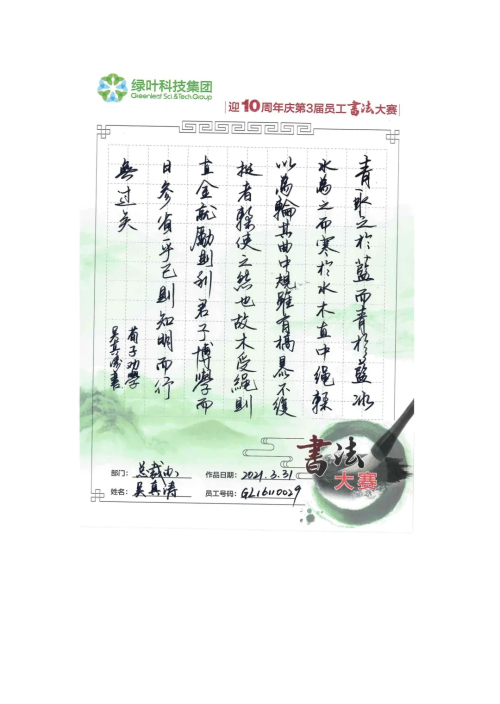 绿叶科技集团
Greenleaf Sci.&Tech.Group
迎10周年庆第3届员工书法大赛
青取之於藍而青於藍冰
水為之而寒於水木直中繩輮
以為輪其曲中規雖有槁暴不復
挺者輮使之然也故木受繩則
直金就勵則利君子博學而
日參省乎己則知明而行
無過矣
荀子劝學
吴真涛書
書法
大赛
部门：总裁办
作品日期：2021.3.31
姓名：吴真涛
员工号码：GL16110029